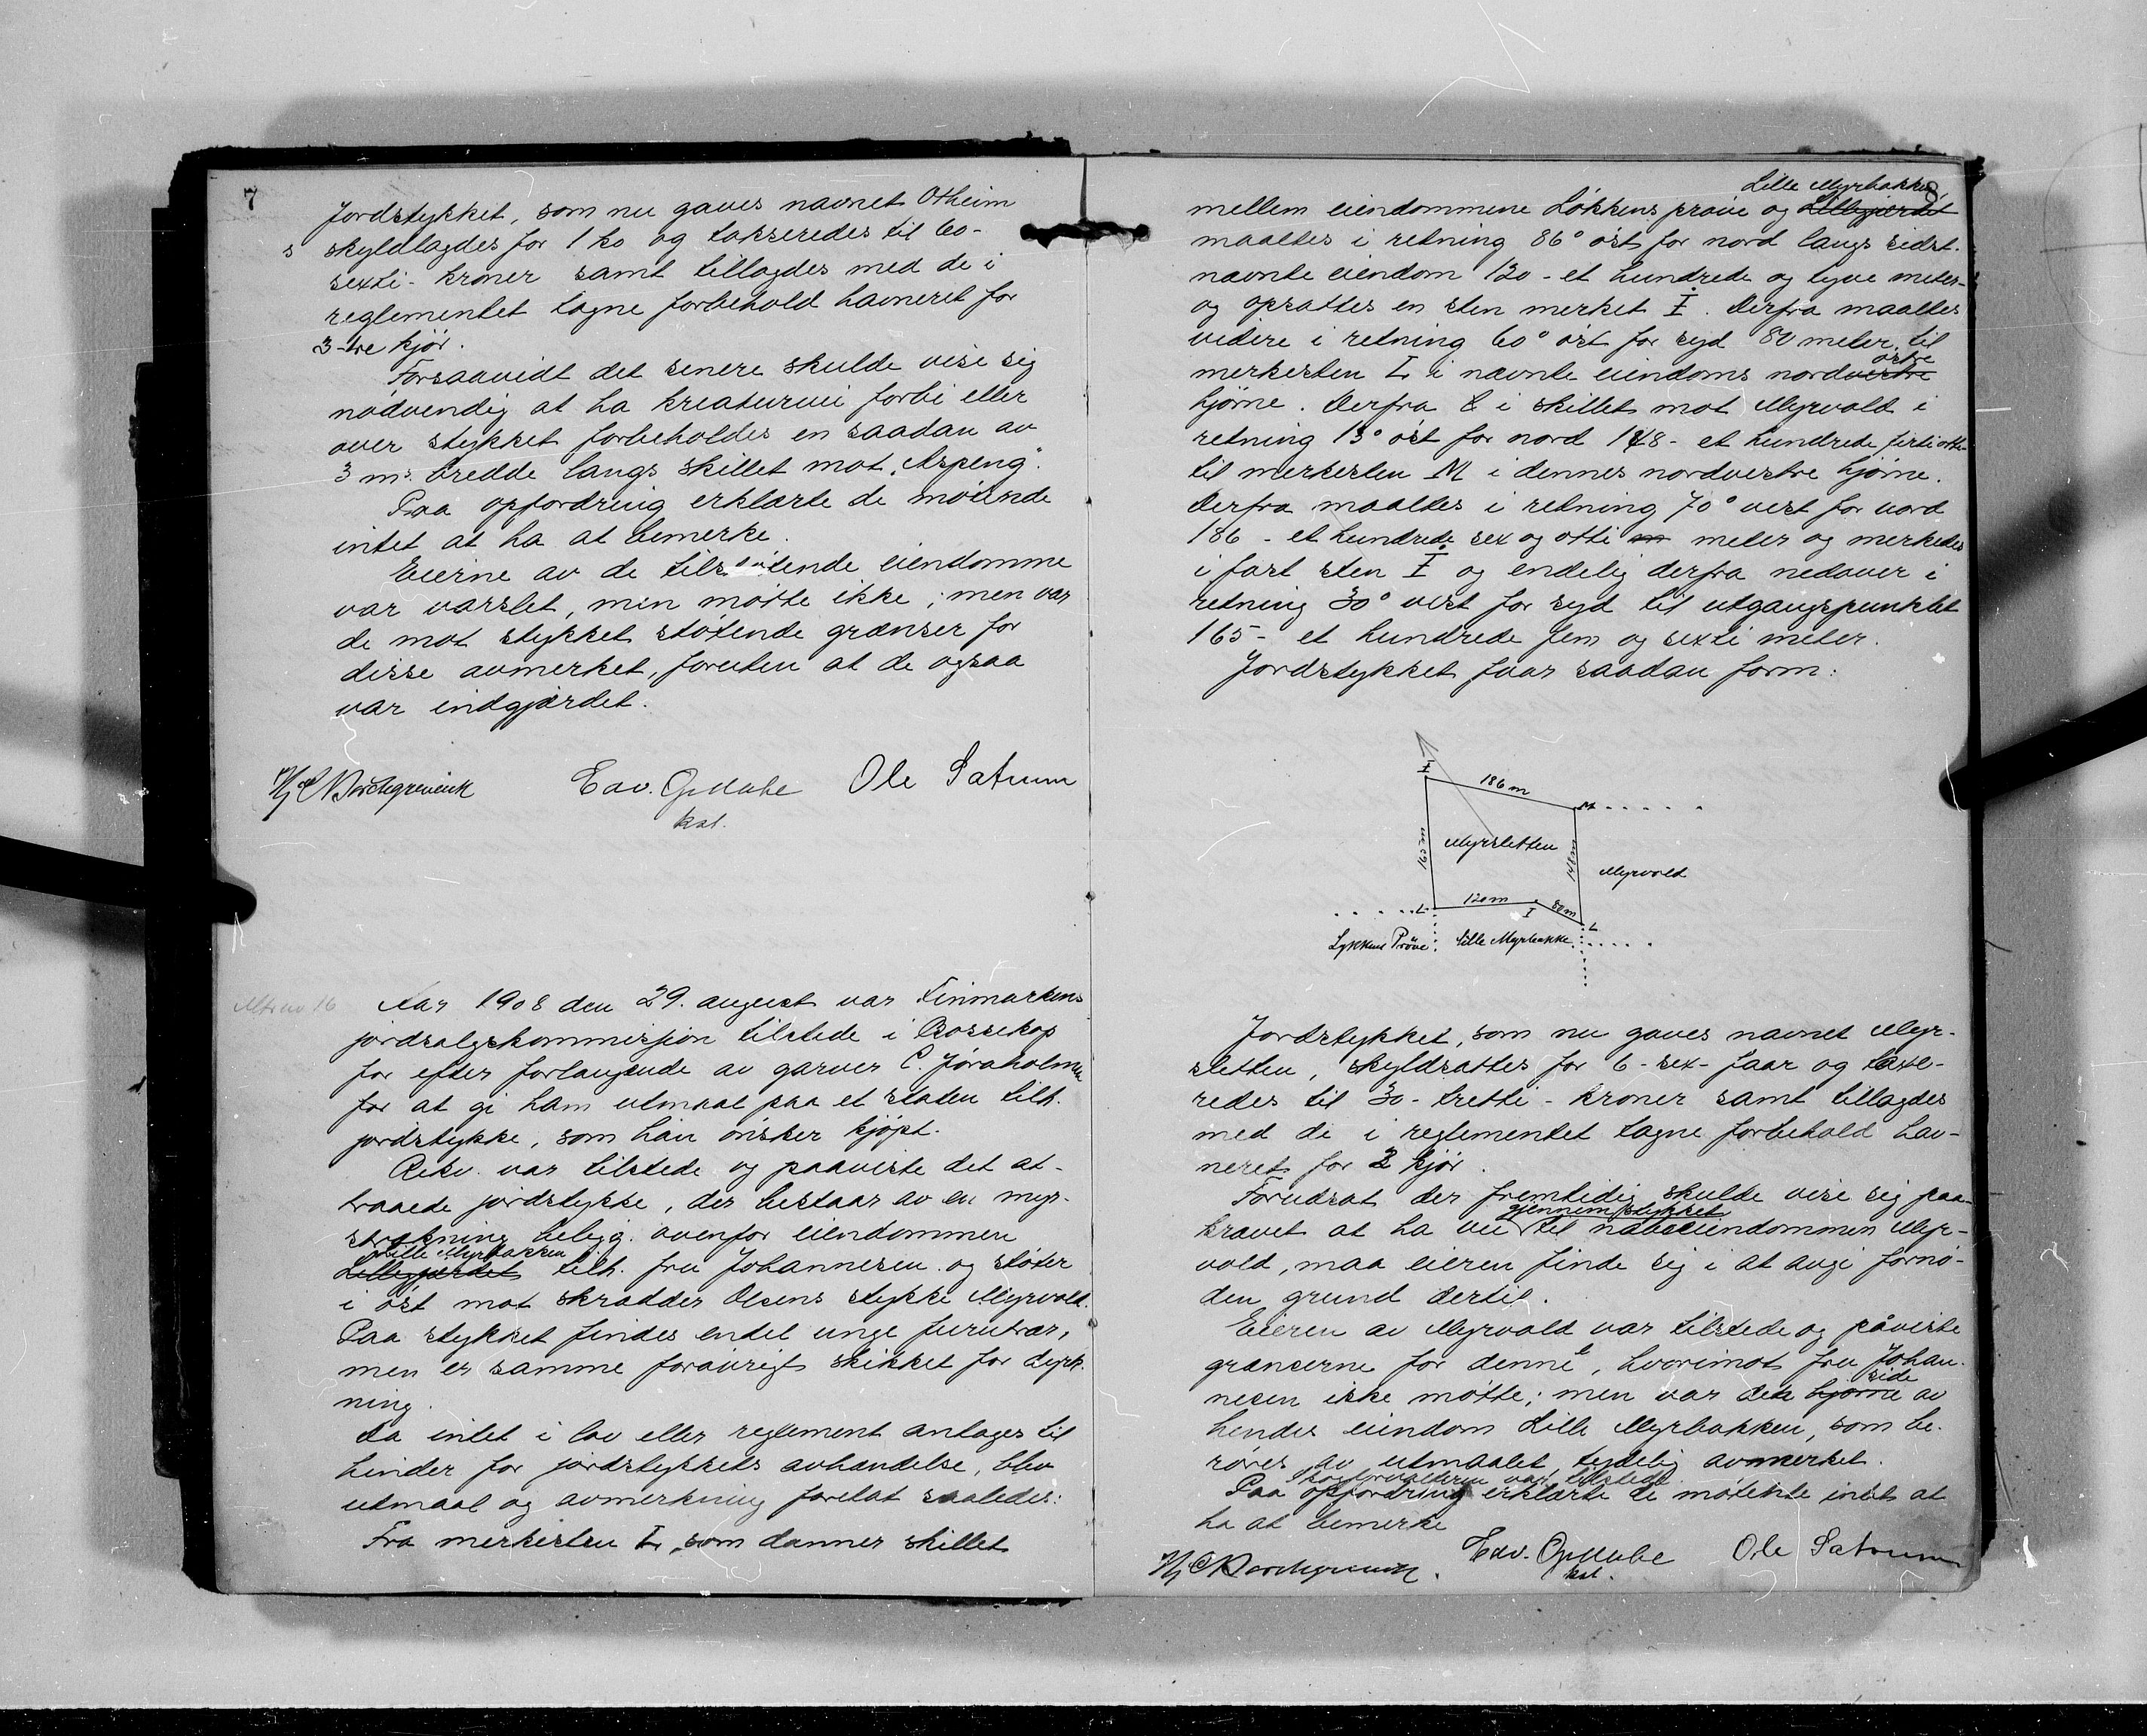 7
Jordstykket, som nu gaves navnet Otheim
s skyldlagdes for 1 ko og takseredes til 60-
sexti- kroner samt tillagdes med de i
reglementet tagne forbehold havneret for
3-tre kjør.
Forsaavidt det senere skulde vise sig
nødvendig at ha kreaturvei forbi eller
over stykket forbeholdes en saadan av
3 m's bredde langs skillet mot „Aspeng".
Paa opfordring erklærte de møtende
intet at ha at bemerke.
Eierne av de tilstøtende eiendomme
var varslet, men møtte ikke; men var
de mot stykket støtende grænser for
disse avmerket, foruten at de ogsaa
var indgjærdet.
Borchgrevink Edv. Ole Satrum
kst.
Aar 1908 den 29. august var Finmarkens
jordsalgskommissjon tilstede i Bossekop
for efter forlangende av garver C. Jøraholmen
for at gi ham utmaal paa et staten tilh.
jordstykke, som han ønsker kjøpt.
Rekv. var tilstede og paaviste det at-
traaede jordstykke, der bestaar av en myr-
strækning beligg. ovenfor eiendommen
Lille Myrbakken
Lillegjærdet tilh. fru Johannesen og støter
i øst mot skrædder Olsens stykke Myrvold.
Paa stykket findes endel unge furutrær,
men er samme forøvrigt skikket for dyrk-
ning.
Da intet i lov eller reglement antages til
hinder for jordstykkets avhændelse, blev
utmaal og avmerkning foretat saaledes:
Fra merkesten L, som danner skillet
Lille Myrbakken 8
mellem eiendommene Løkkens prøve og Lillegjærdet
maaltes i retning 86° øst for nord langs sidst-
nævnte eiendom 120- et hundrede og tyve meter-
og opsattes en sten merket I. Derfra maaltes
videre i retning 60° øst for syd 80 meter til
østre
merkesten L i nævnte eiendoms nordvestre
hjørne. Derfra & i skillet mot Myrvold i
retning 13° øst for nord 148- et hundrede firtiotte-
til merkesten M i dennes nordvestre hjørne.
Derfra maaltes i retning 70° vest for nord
186 - et hundrede sex og otti m meter og merkedes
i fast sten I og endelig derfra nedover i
retning 30° vest for syd til utgangspunktet
165- et hundrede fem og sexti meter.
Jordstykket faar saadan form:
I
186 m
M
165 m
Myrsletten
148 m
Myrvold
L
120 m
I
80 m
L
Lykkens Prøve
Lille Myrbakke
Jordstykket, som nu gaves navnet Myr-
sletten, skyldsattes for 6- sex- faar og taxe-
redes til 30- tretti- kroner samt tillagdes
med de i reglementet tagne forbehold hav-
neret for 2 kjør.
Forudsat der fremtidig skulde vise sig paa-
gjennem stykket
krævet at ha vei til naboeiendommen Myr-
vold, maa eieren finde sig i at avgi fornø-
den grund dertil.
Eieren av Myrvold var tilstede og påviste
grænserne for denne, hvorimot fru Johan-
side
nesen ikke møtte; men var den hjørne av
hendes eiendom Lille Myrbakken, som be-
røres av utmaalet, tydelig avmerket.
Skogforvalteren var tilstede.
Paa opfordring erklærte de møtende intet at
ha at bemerke
Borchgrevink. Edv. Ole Satrum
kst.